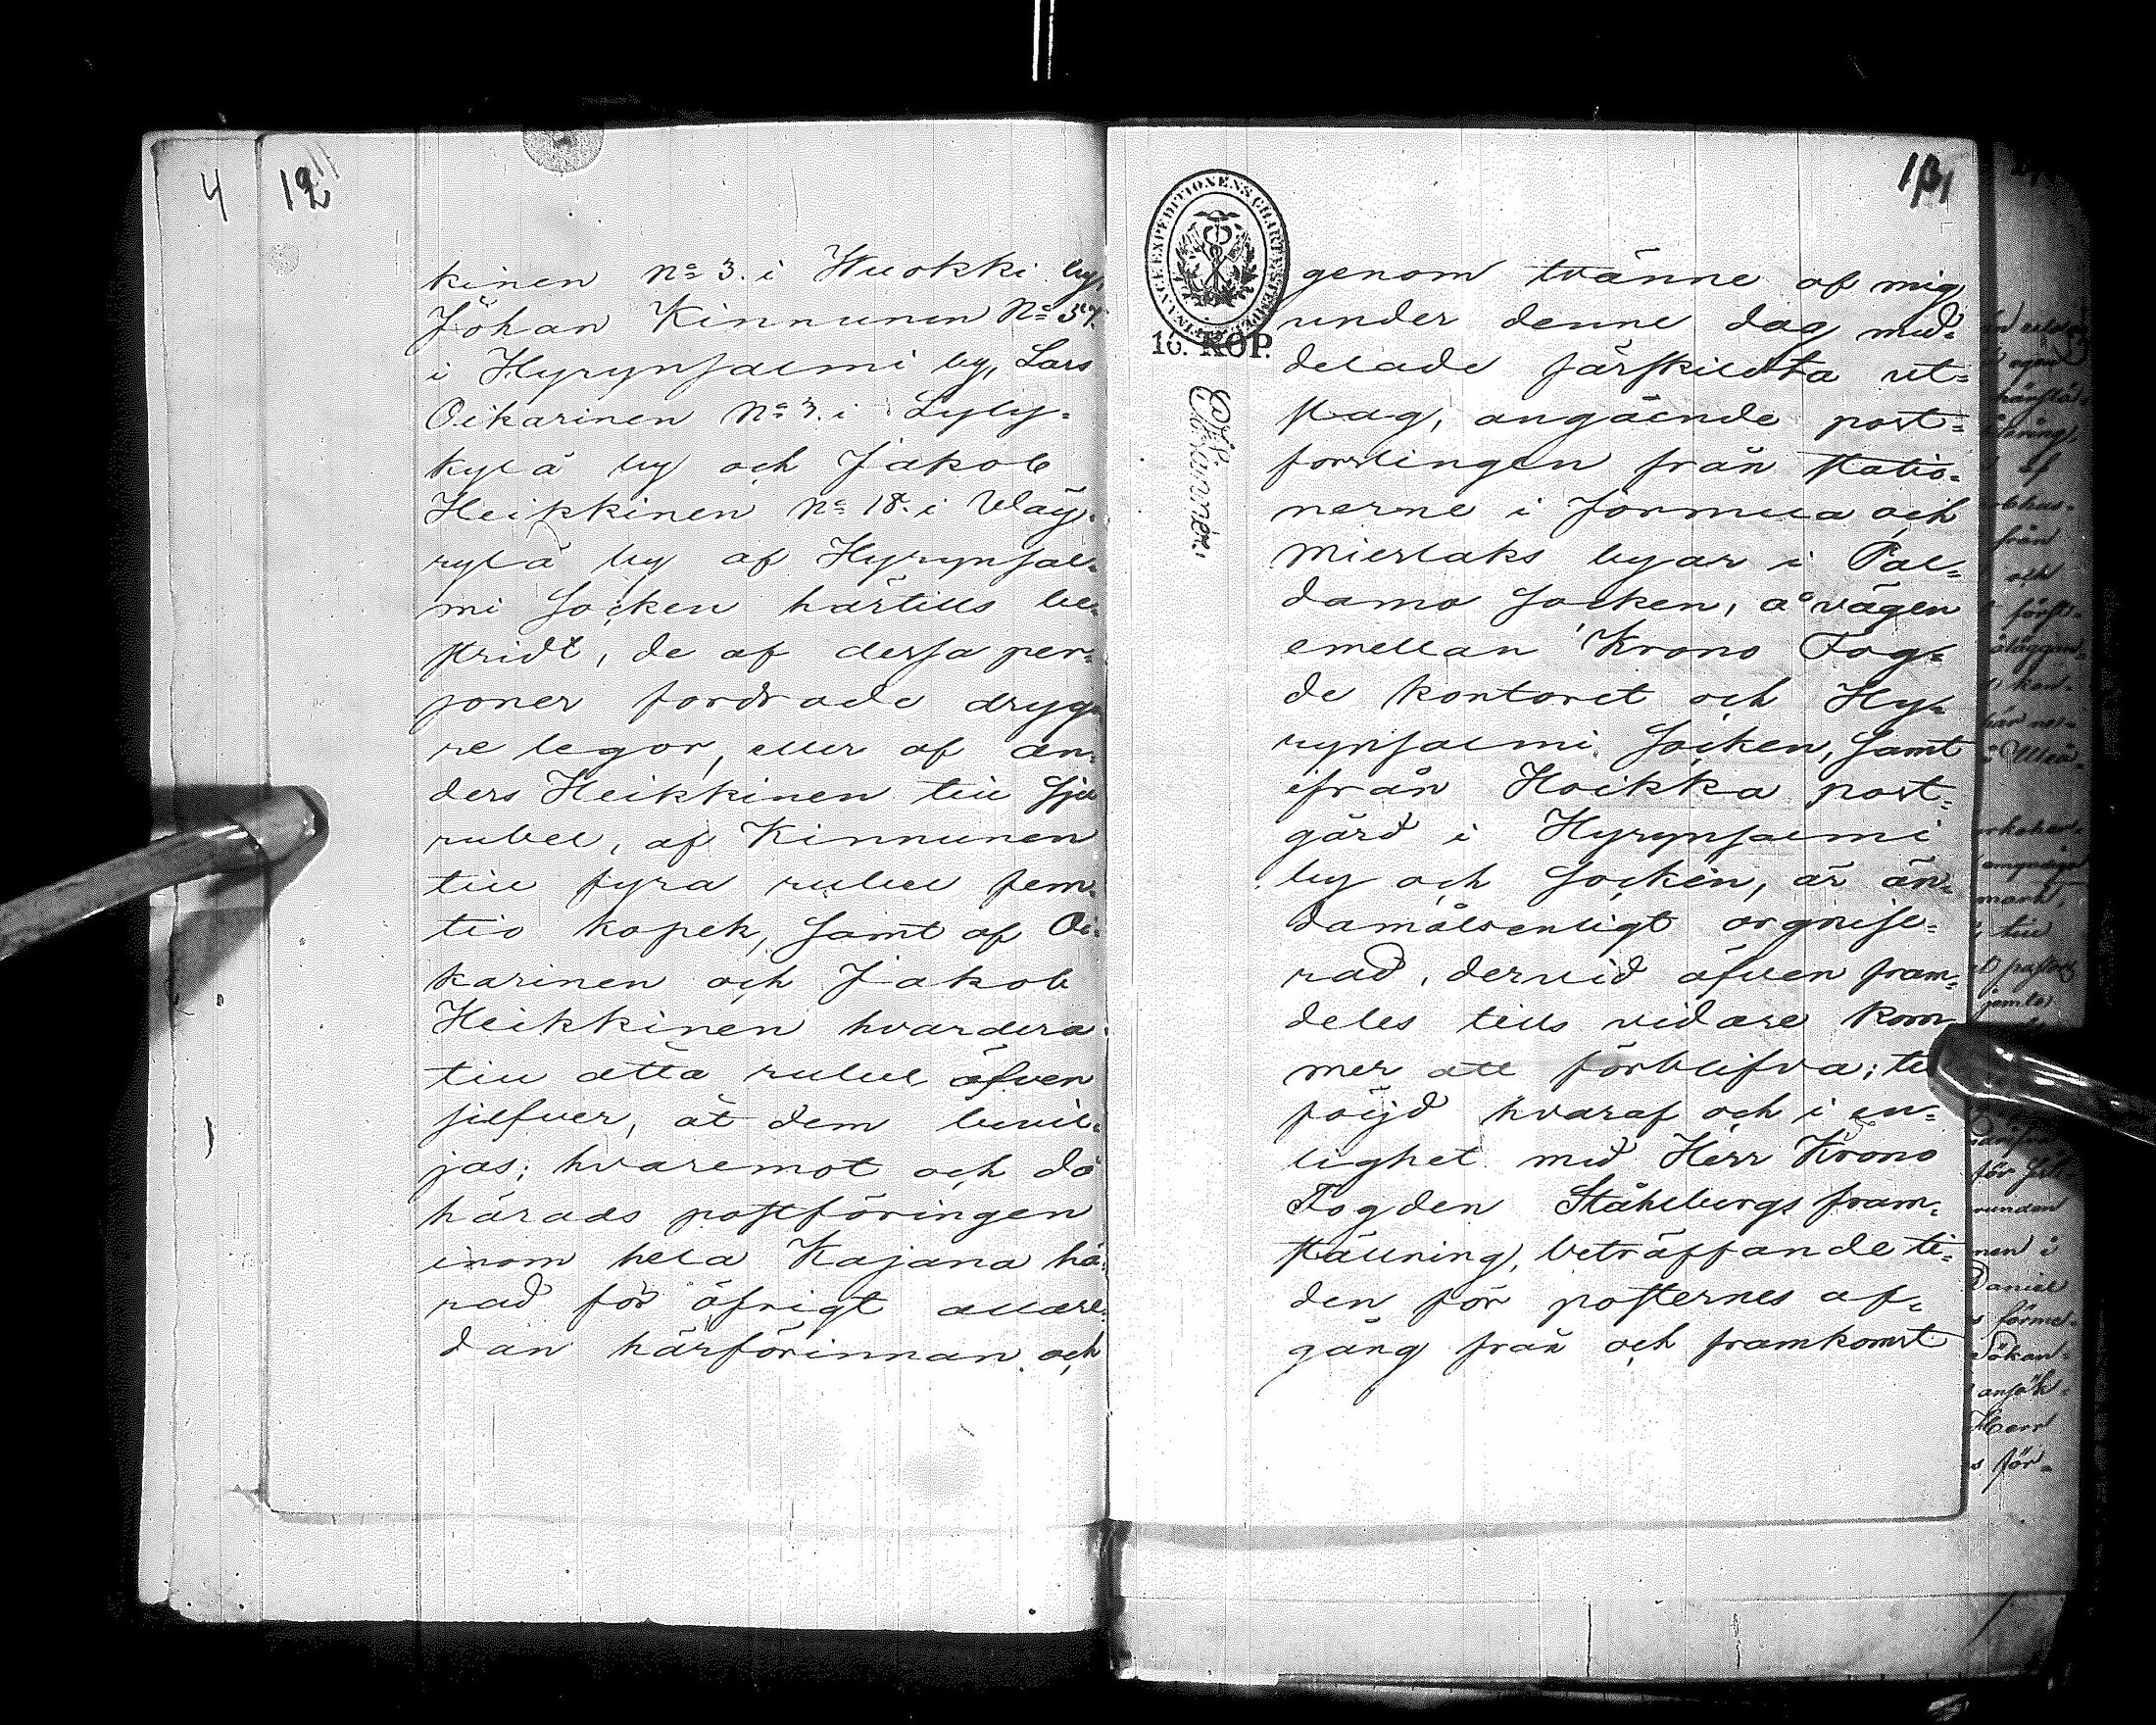 4
12
kinen No 3. i Wuokki by,
Johan Kinnunen No 37.
i Hyrynsalmi by, Lars
Oikarinen No 3. i Lyly-
kylä by och Jakob
Heikkinen No 18. i Wäy-
rylä by af Hyrynsal-
mi Socken härtills be-
stridt, de af dessa per-
soner fordrade dryga-
re legor, eller af An-
ders Heikkinen till sju
rubel, af Kinnunen
till fyra rubel fem-
tio kopek, samt af Oi-
karinen och Jakob
Heikkinen hvardera
till åtta rubel äfven
silfver, åt dem bevil-
jas; hvaremot och då
härads postföringen
inom hela Kajana hä-
rad för öfrigt allare-
dan härförinnan och
13
FINANCE EXPEDITIONENS CHARTÆ STEMPEL
16. KOP.
genom tvänne af mig
under denne dag med-
delade särskildta ut-
slag, angående post-
forslingen från statio-
nerne i Jormua och
Mieslaks byar i Pal-
damo Socken, å vägen
emellan Krono Fog-
de kontoret och Hy-
rynsalmi Socken, samt
ifrån Hoikka post-
gård i Hyrynsalmi
by och Socken, är än-
damålsenligt orgnise-
rad, dervid äfven fram-
deles tills vidare kom-
mer att förblifva; til
följd hvaraf och i en-
lighet med Herr Krono
Fogden Ståhlbergs fram-
ställning, beträffande ti-
den för posternes af-
gång från och framkomst